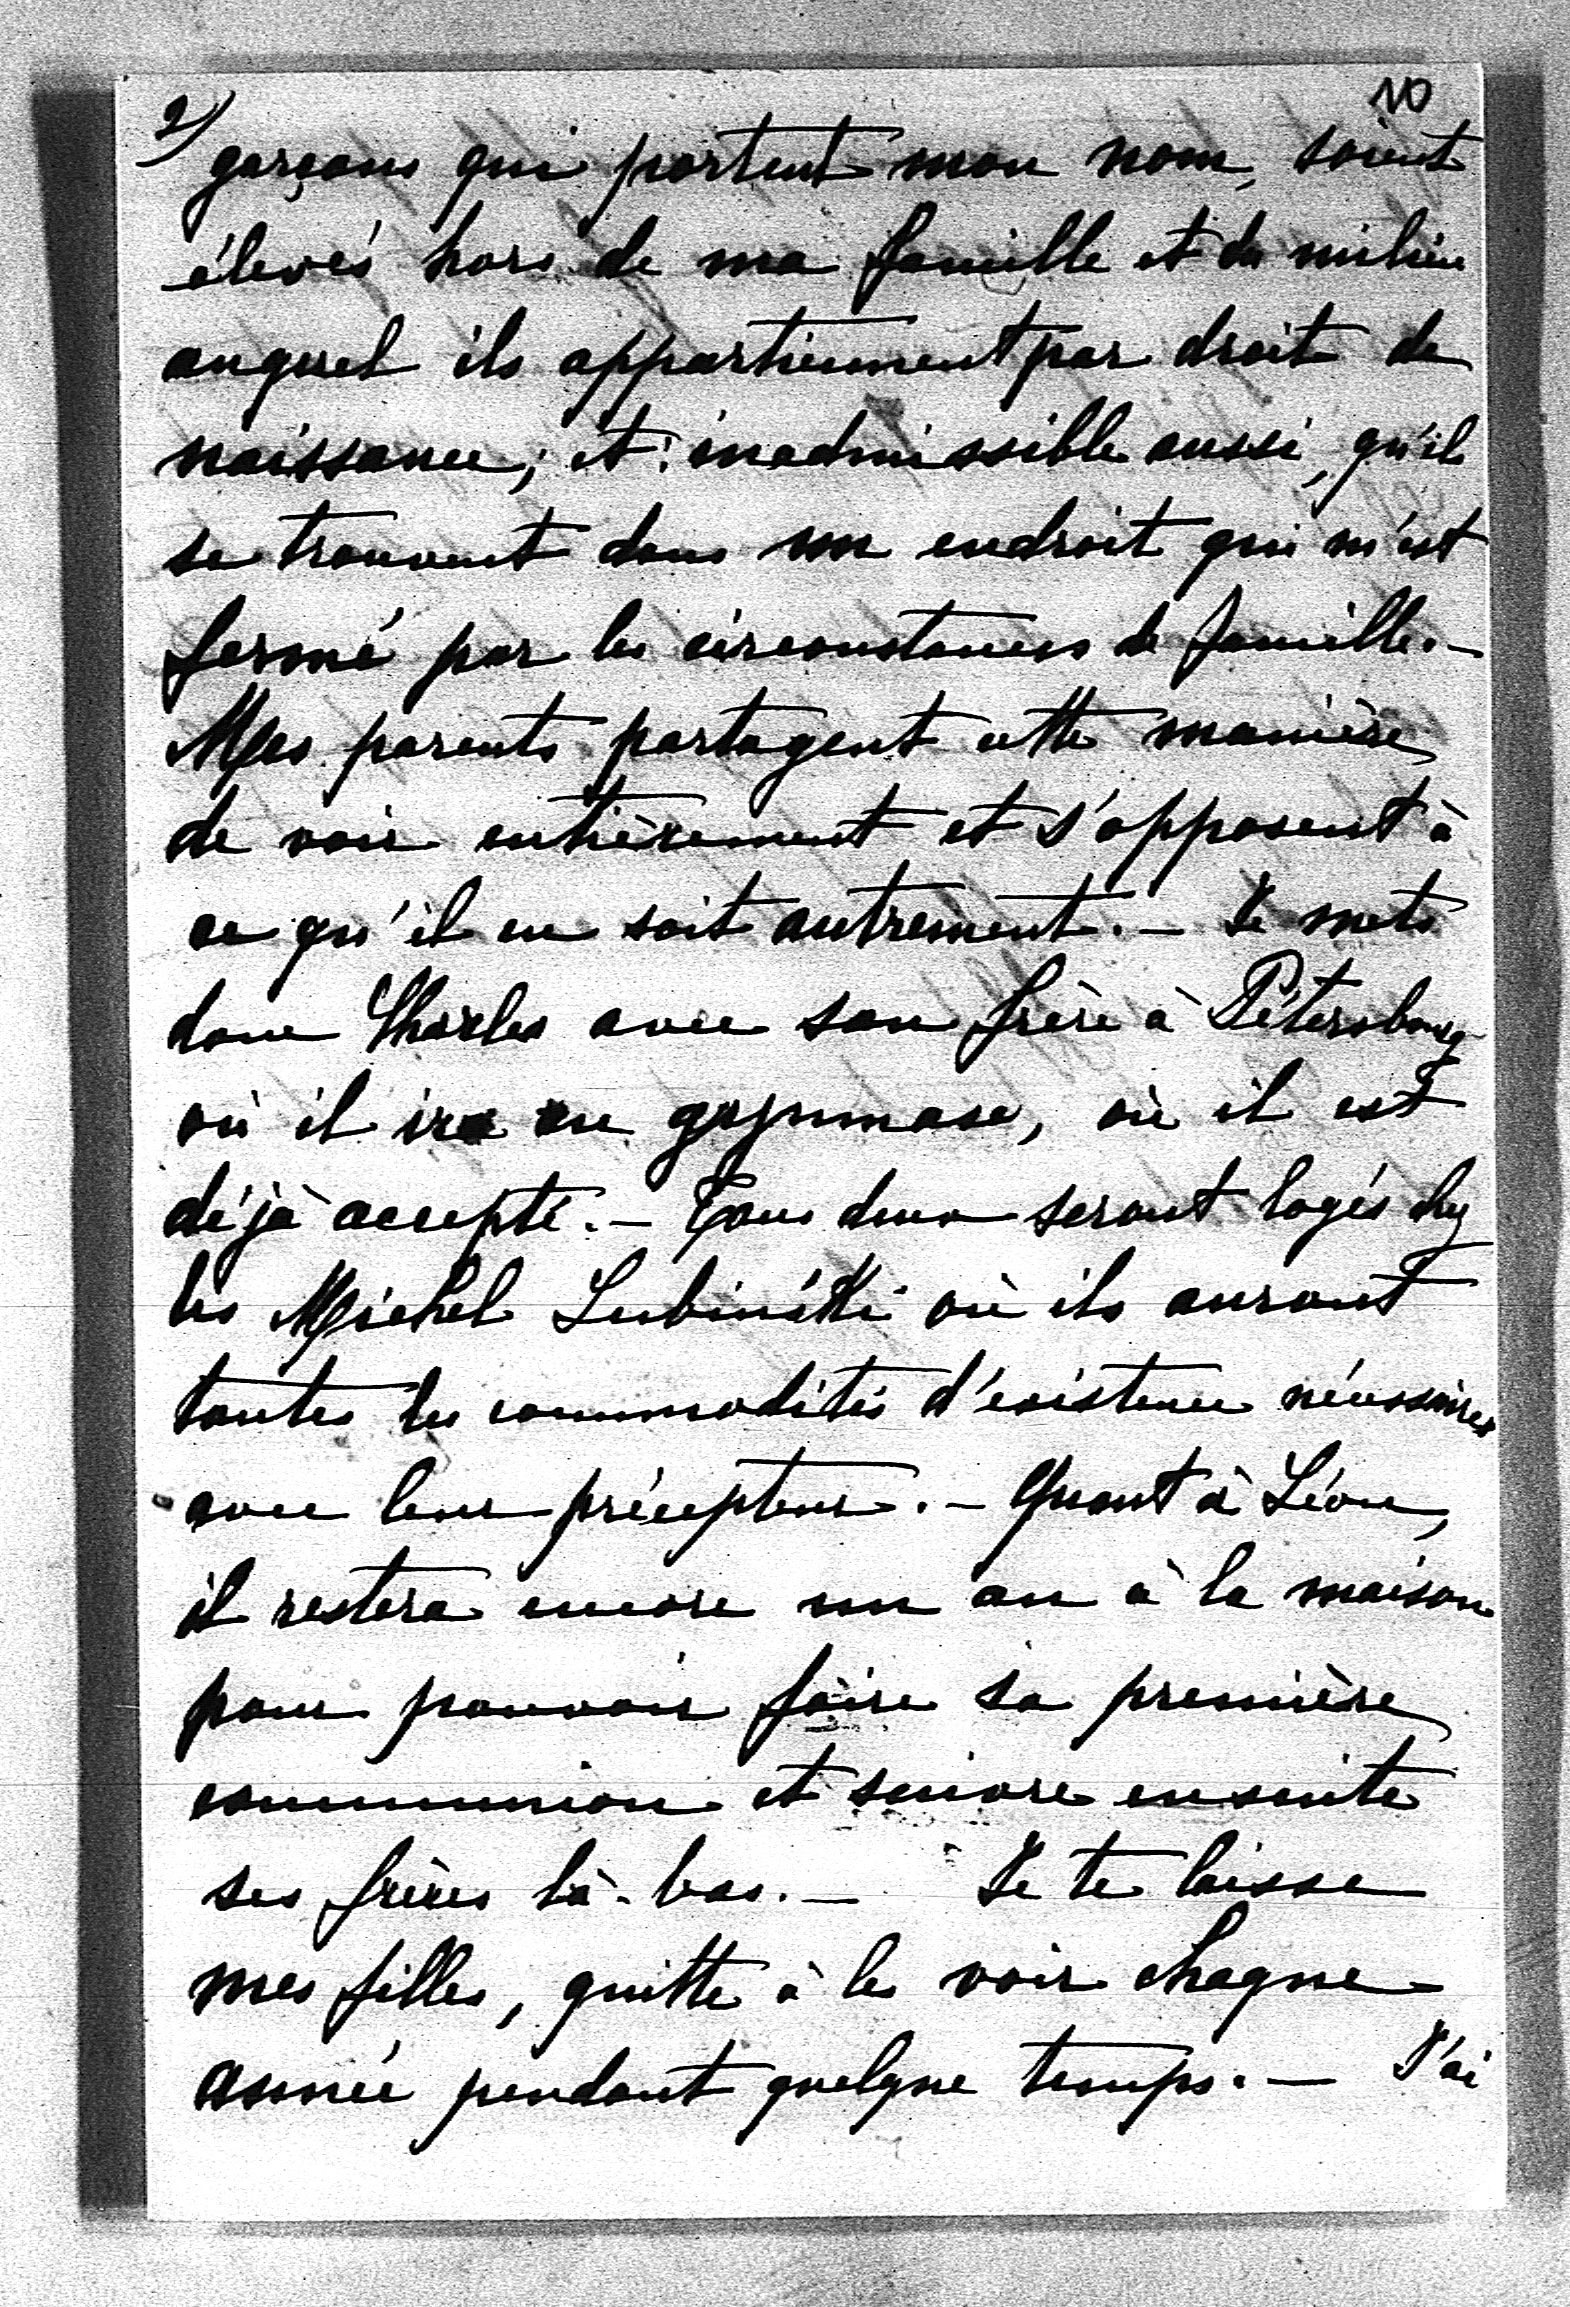 2) 10
garçons qui portent mon nom, soient
élevés hors de ma famille et du milieu
auquel ils appartiennent par droit de
naissance; et inadmissible aussi, qu'ils
se trouvent dans un endroit qui m'est
fermé par les circonstances de famille.—
Mes parents partagent cette manière
de voir entièrement et s'opposent à
ce qu'il en soit autrement.— Je mets
donc Charles avec son frère à Pétersbourg
où il ira au gymnase, où il est
déjà accepté.— Tous deux seront logés chez
les Michel Lubiński où ils auront
toutes les commodités d'existence nécessaires
avec leur précepteur.— Quant à Léon,
il restera encore un an à la maison
pour pouvoir faire sa première
communion et suivre ensuite
ses frères là-bas.— Je te laisse
mes filles, quitte à les voir chaque
année pendant quelque temps.— J'ai